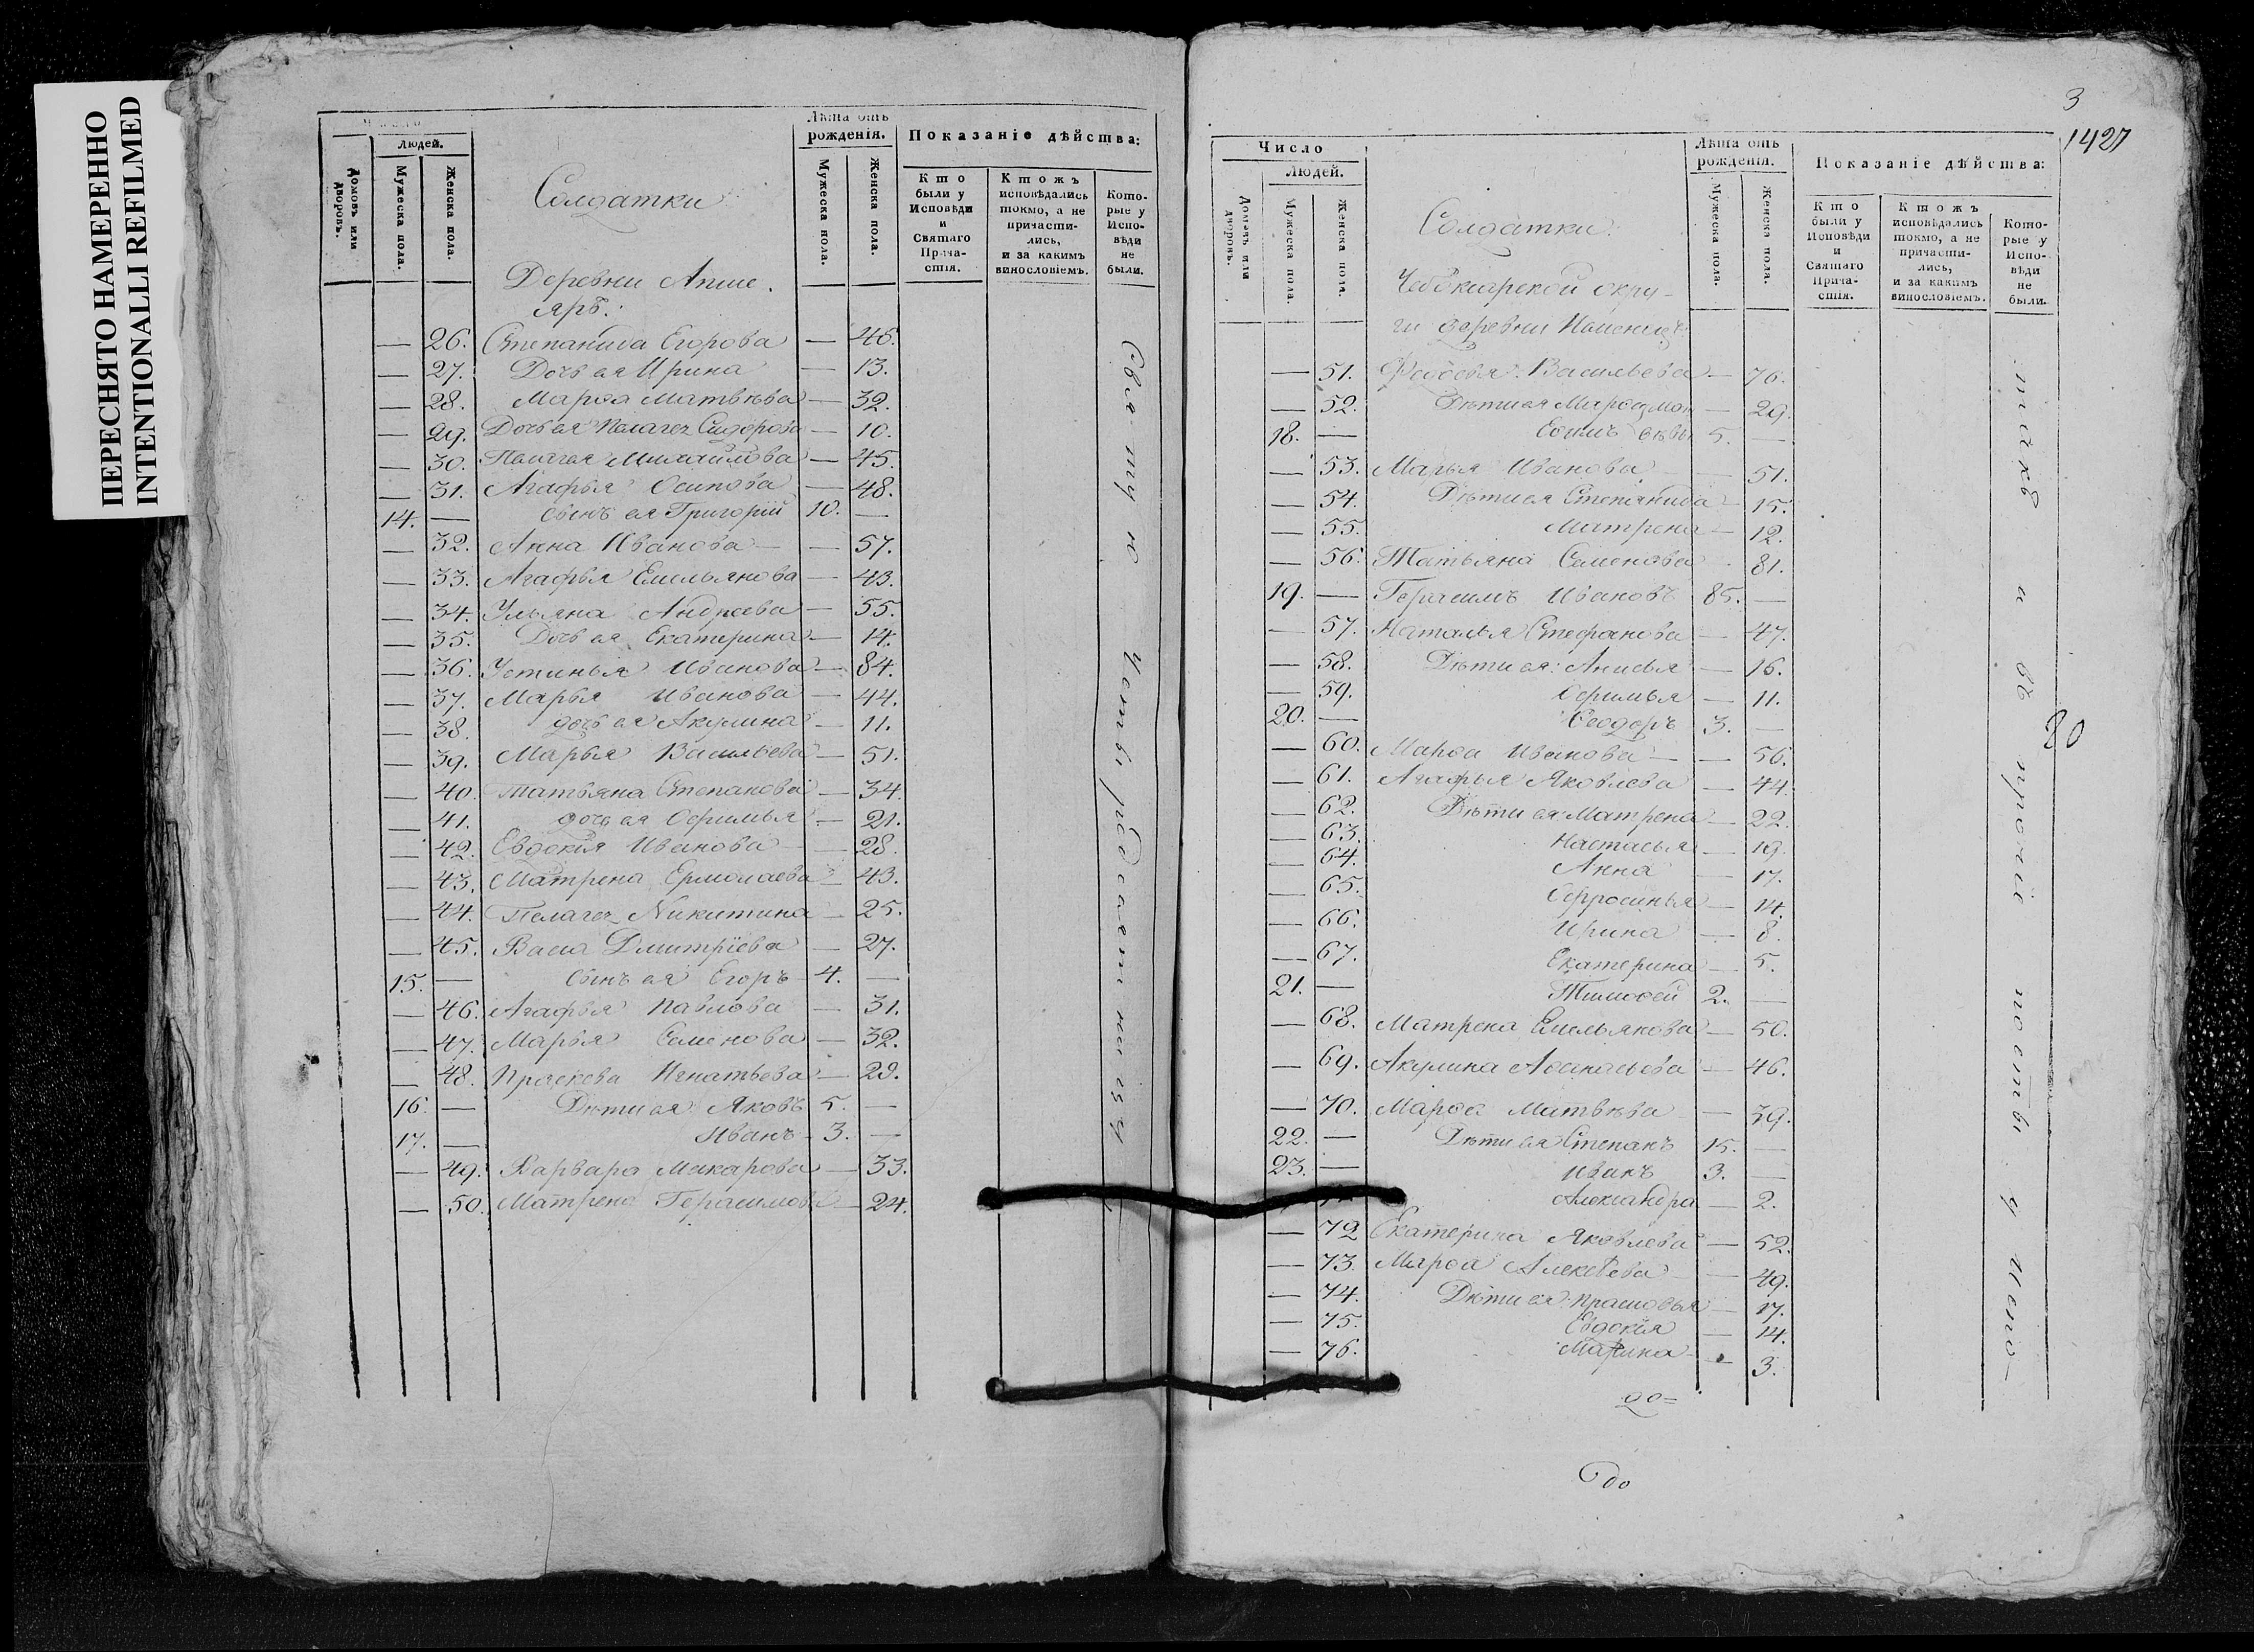 ПЕРЕСНЯТО НАМЕРЕННО
INTENTIONALLI REFILMED
Людей.
Домовъ или дворовъ.
Мужеска пола.
Женска пола.
Солдатки
Лѣта отъ рожденія.
Мужеска пола.
Женска пола.
Показаніе дѣйства:
Кто были у Исповѣди и Святаго Причастія.
Ктожъ исповѣдались токмо, а не причастились, и за какимъ винословіемъ.
Которые у Исповѣди не были.
Деревни Апше
яръ:
— 26. Степанида Егорова — 46.
— 27. Дочь ея Ирина — 13.
— 28. Марѳа Матвѣва — 32.
— 29. Дочь ея Пелагея Сидорова — 10.
— 30. Пелагея Михайлова — 45.
— 31. Агафья Осипова — 48.
14. — сынъ ея Григорій 10. —
— 32. Анна Иванова — 57.
— 33. Агафья Емельянова — 43.
— 34. Ульяна Андреева — 55.
— 35. Дочь ея Екатерина — 14.
— 36. Устинья Иванова — 84.
— 37. Марья Иванова — 44.
— 38. дочь ея Акулина — 11.
— 39. Марья Васильева — 51.
— 40. Татьяна Степанова — 34.
— 41. дочь ея Офимья — 21.
— 42. Евдокія Иванова — 28.
— 43. Матрена Ермолаева — 43.
— 44. Пелагея Никитина — 25.
— 45. Васа Дмитріева — 27.
15. — сынъ ея Егоръ 4. —
— 46. Агафья Павлова — 31.
— 47. Марья Семенова — 32.
— 48. Праскева Игнатьева — 29.
16. — Дѣти ея Яковъ 5. —
17. — Иванъ 3. —
— 49. Варвара Макарова — 33.
— 50. Матрена Герасимова — 24.
Святую Четыредесятницу
3
1427
Число
Людей.
Домовъ или дворовъ.
Мужеска пола.
Женска пола.
Солдатки
Лѣта отъ рожденія.
Мужеска пола.
Женска пола.
Показаніе дѣйства:
Кто были у Исповѣди и Святаго Причастія.
Ктожъ исповѣдались токмо, а не причастились, и за какимъ винословіемъ.
Которые у Исповѣди не были.
Чебоксарской окру-
ги деревни
— 51. Васильева — 76.
— 52. Дѣти ея — 29.
18. — 5. —
— 53. Марья Иванова — 51.
— 54. Дѣти ея Степанида — 15.
— 55. Матрена — 12.
— 56. Татьяна Семенова — 81.
19. — Герасимъ Ивановъ 85. —
— 57. Наталья Стефанова — 47.
— 58. Дѣти ея: Анисья — 16.
— 59. Офимья — 11.
20. — Ѳеодоръ 3. —
— 60. Марѳа Иванова — 56.
— 61. Агафья Яковлева — 44.
— 62. Дѣти ея Матрена — 22.
— 63. Настасья — 19.
— 64. Анна — 17.
— 65. Офросинья — 14.
— 66. Ирина — 8.
— 67. Екатерина — 5.
21. — Тимоѳей 2. —
— 68. Матрена Емельянова — 50.
— 69. Акулина Аѳанасьева — 46.
— 70. Марѳа Матвѣва — 39.
22. — Дѣти ея Степанъ 15. —
23. — Иванъ 3. —
Александра — 2.
— 72 Екатерина Яковлева — 52.
— 73. Марѳа Алексѣева — 49.
— 74. Дѣти ея Прасковья — 17.
— 75. Евдокія — 14.
— 76. Марина — 3.
и въ прочіе посты у Испо-